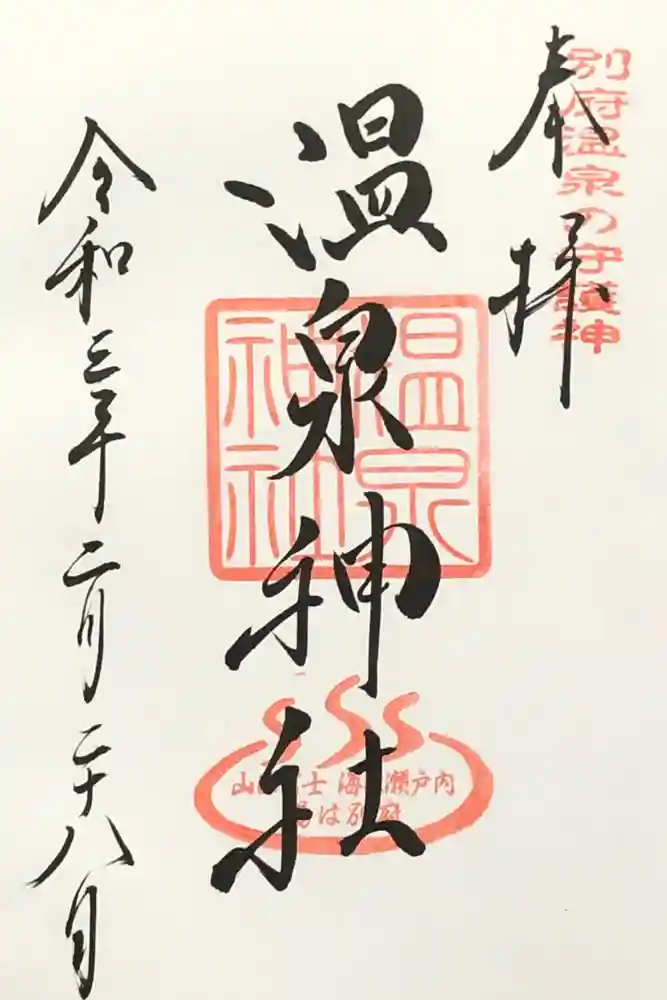 別府温泉の守護神
奉拝
温泉神社
温泉
神社
山は富士 海は瀬戸内
湯は別府
令和三年二月二十八日